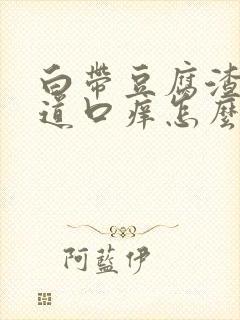 白帶豆腐渣
道口痒怎麼
阿藍伊